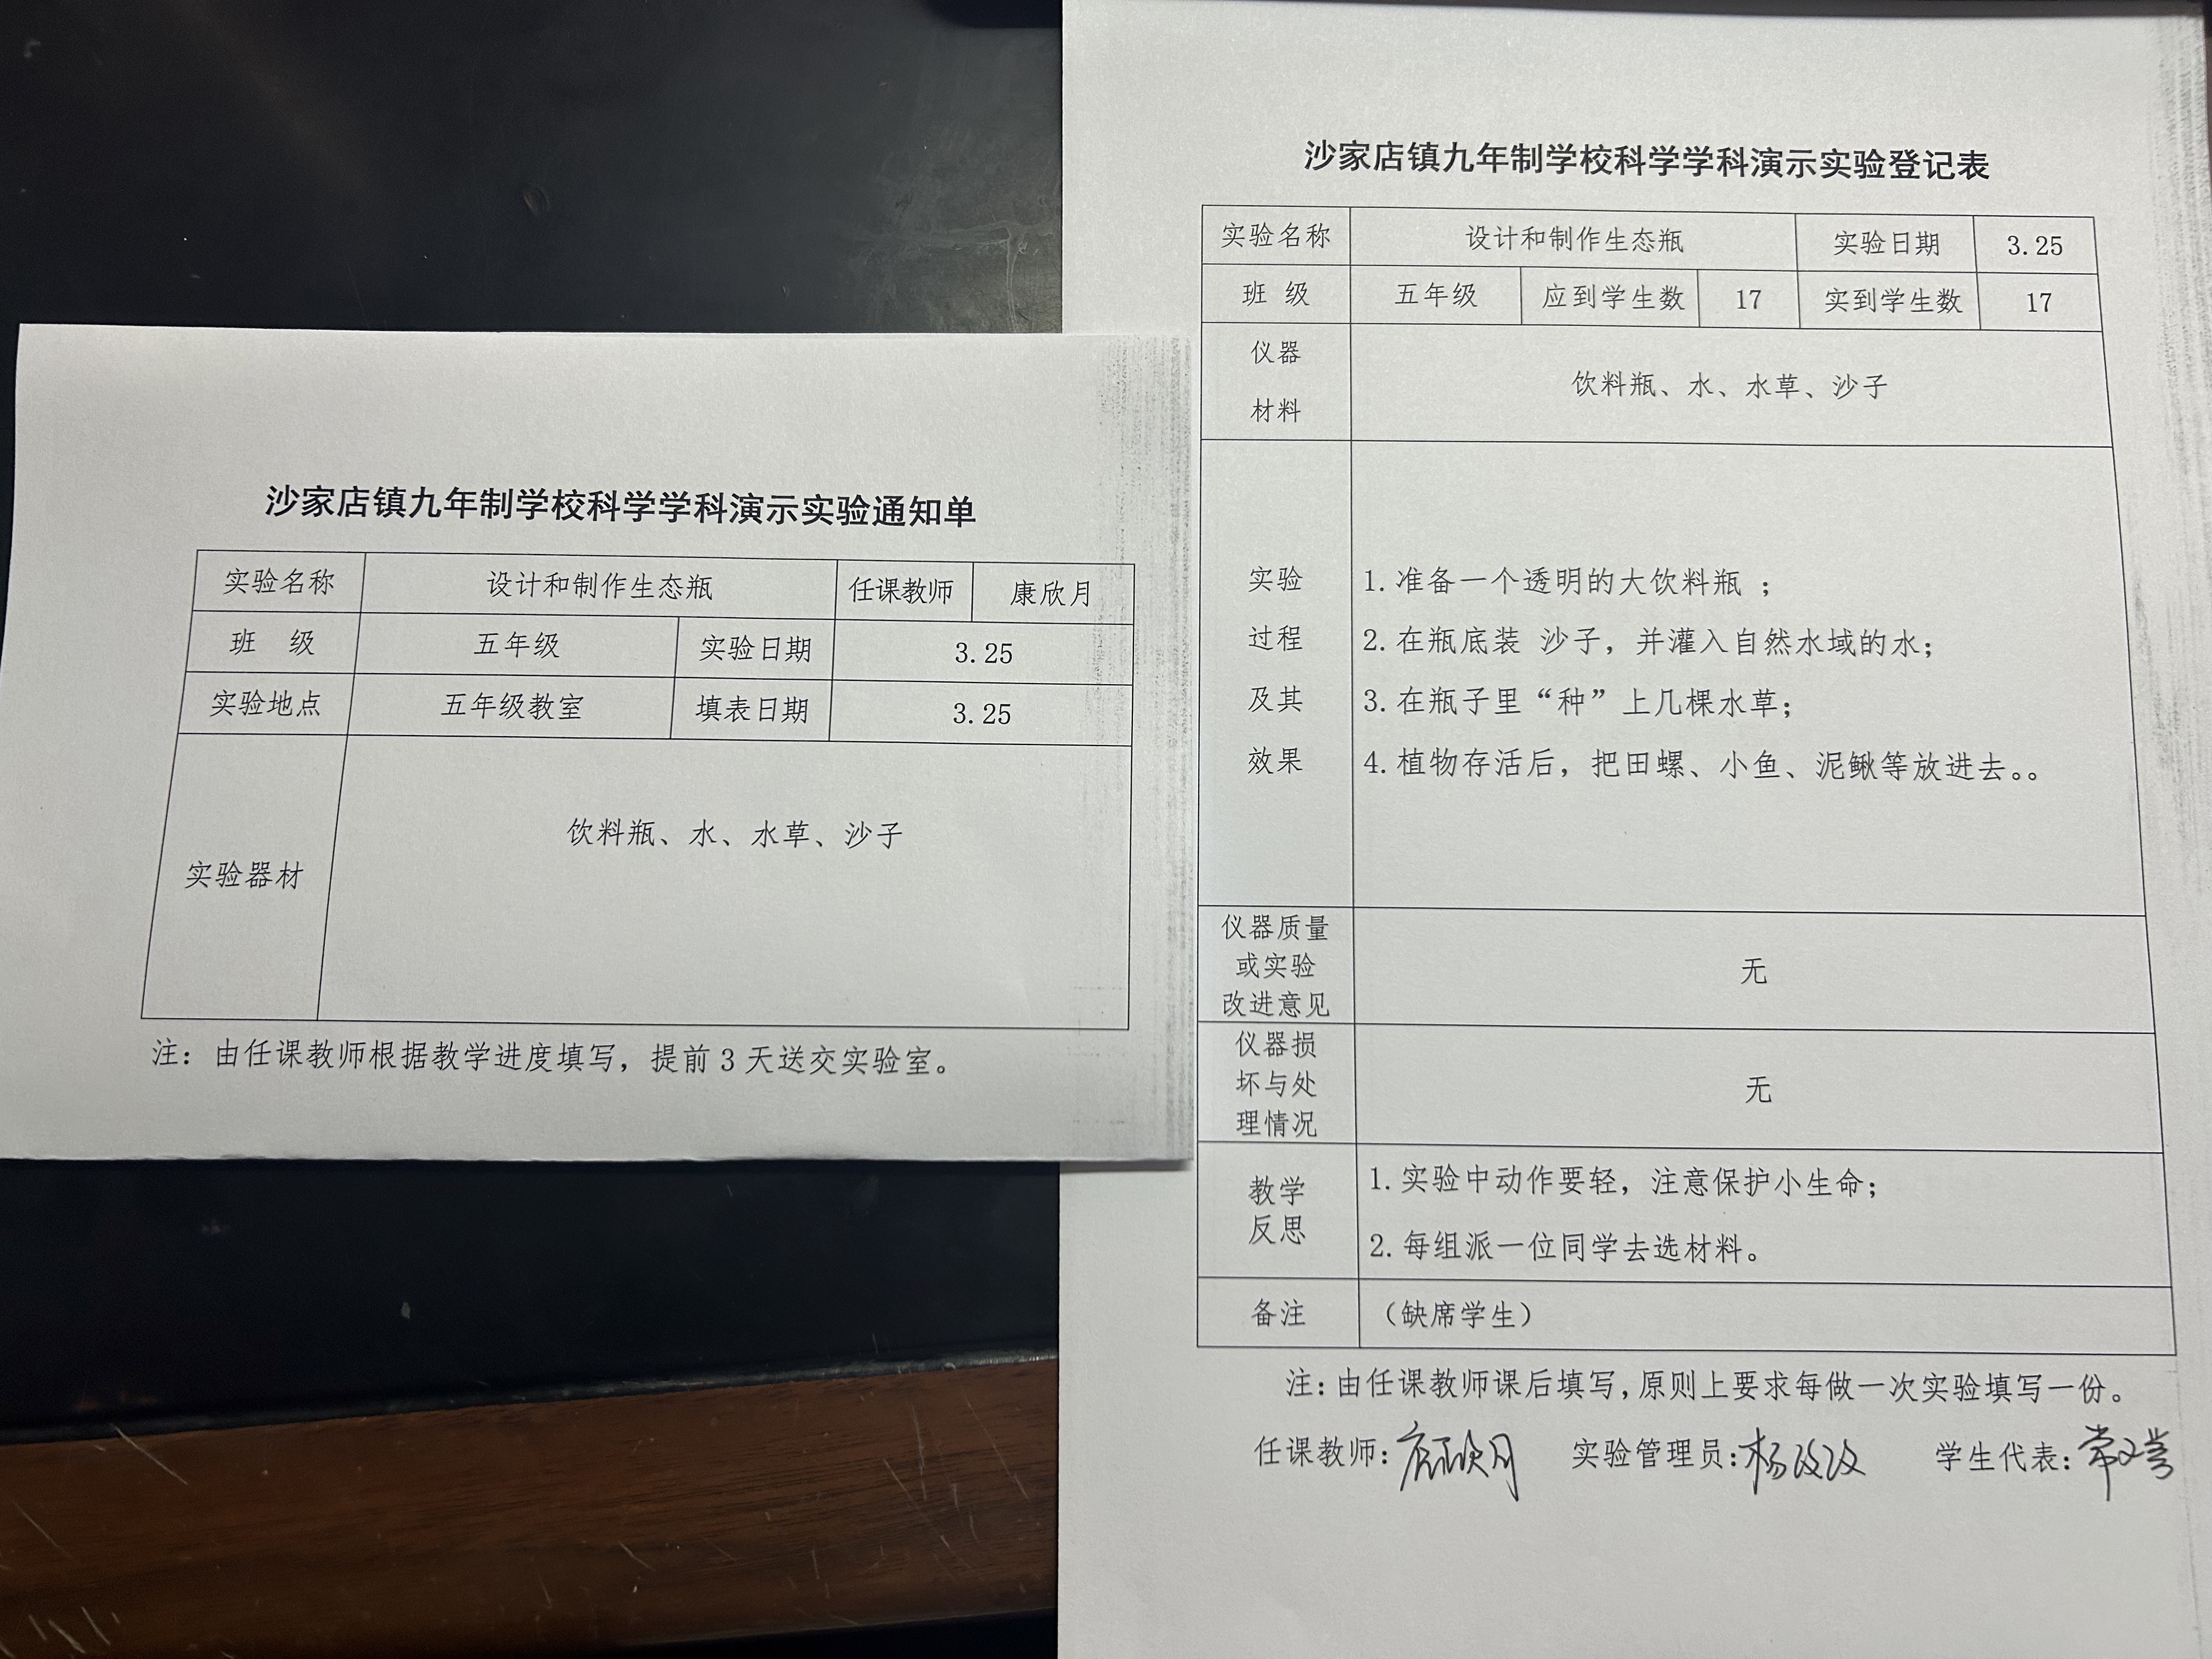 沙家店镇九年制学校科学学科演示实验通知单
实验名称 设计和制作生态瓶 任课教师 康欣月
班 级 五年级 实验日期 3.25
实验地点 五年级教室 填表日期 3.25
实验器材 饮料瓶、水、水草、沙子
注：由任课教师根据教学进度填写，提前3天送交实验室。
沙家店镇九年制学校科学学科演示实验登记表
实验名称 设计和制作生态瓶 实验日期 3.25
班 级 五年级 应到学生数 17 实到学生数 17
仪器
材料
饮料瓶、水、水草、沙子
实验
过程
及其
效果
1.准备一个透明的大饮料瓶 ；
2.在瓶底装 沙子，并灌入自然水域的水；
3.在瓶子里“种”上几棵水草；
4.植物存活后，把田螺、小鱼、泥鳅等放进去。。
仪器质量
或实验
改进意见
无
仪器损
坏与处
理情况
无
教学
反思
1.实验中动作要轻，注意保护小生命；
2.每组派一位同学去选材料。
备注 （缺席学生）
注：由任课教师课后填写，原则上要求每做一次实验填写一份。
任课教师：康欣月 实验管理员：杨 学生代表：常